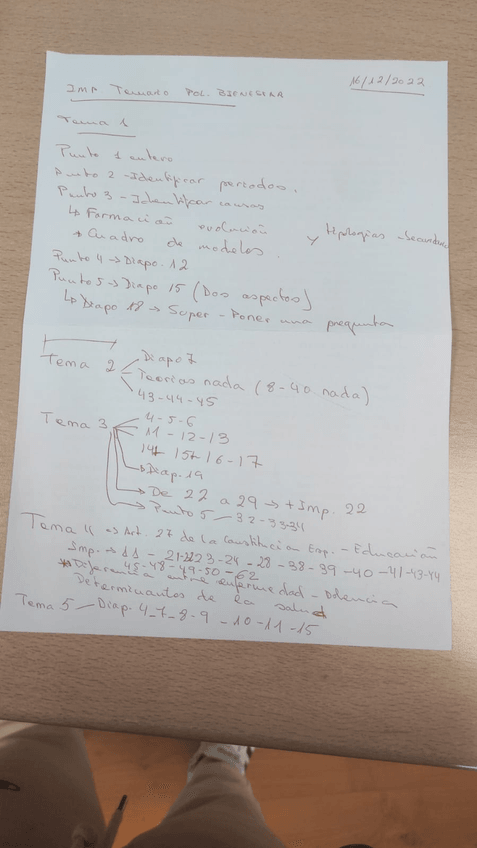 16/12/2022
IMP Temario POL. BIENESTAR
Tema 1
Punto 1 entero
Punto 2 - Identificar periodos.
Punto 3 - Identificar causas
↳ Formación evolución y tipologias - Secundar
* Cuadro de modelos.
Punto 4 → Diapo. 12
Punto 5 → Diapo 15 (Dos aspectos)
↳ Diapo 18 → Super - Poner una pregunta
Tema 2
Diapo 7
Teorias nada (8-40 nada)
43-44-45
Tema 3
4-5-6
11-12-13
14 15 16-17
Diap. 19
De 22 a 29 → + Imp. 22
Punto 5 - 32-33-34
Tema 4 → Art. 27 de la Constitucion Esp. - Educación
Imp. → 11 - 21-22-23-24-28-38-39-40-41-43-44
45-48-49-50-62
* Diferencia entre enfermedad - Dolencia
Determinantes de la salud
Tema 5 - Diap. 4-7-8-9-10-11-15